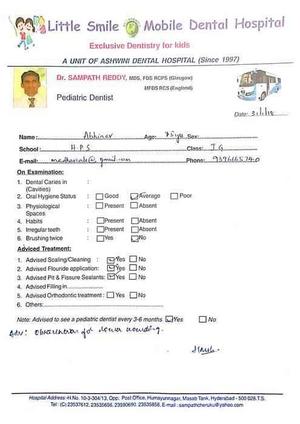 Little Smile Mobile Dental Hospital
Exclusive Dentistry for kids
A UNIT OF ASHWINI DENTAL HOSPITAL (Since 1997)
Dr. SAMPATH REDDY, MDS, FDS RCPS (Glasgow)
MFDS RCS (England)
Pediatric Dentist
Date:
Name: Abhinav Age: Sex:
School: H.P.S Class: I.G
E-mail: Phone:
On Examination:
1. Dental Caries in :
(Cavities)
2. Oral Hygiene Status : Good Average Poor
3. Physiological : Present Absent
Spaces
4. Habits : Present Absent
5. Irregular teeth : Present Absent
6. Brushing twice : Yes No
Adviced Treatment:
1. Advised Scaling/Cleaning : Yes No
2. Advised Flouride application: Yes No
3. Advised Pit & Fissure Sealants: Yes No
4. Advised Filling in
5. Advised Orthodontic treatment : Yes No
6. Others:
Note: Advised to see a pediatric dentist every 3-6 months Yes No
Adv: Observation of lower
Hospital Address: H.No. 10-3-304/13, Opp. Post Office, Humayunnagar, Masab Tank, Hyderabad - 500 028 T.S.
Tel: (C):23537612, 23535656, 23390690, 23535858, E-mail: